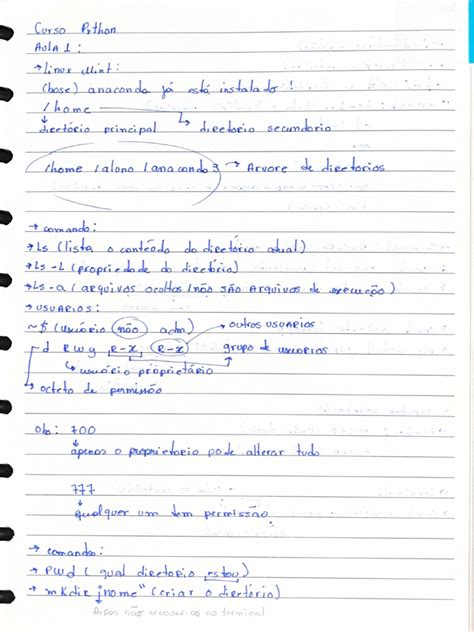 Curso Python
Aula 1:
→ linux Mint:
(base) anaconda já está instalado!
/ home
diretório principal ↳ diretorio secundario
/home /aluno /anaconda3 → Arvore de diretorios
→ comando:
→ Ls (lista o conteúdo do diretório atual)
→ Ls -L (propriedade do diretório)
→ Ls -a (arquivos ocultos / não são Arquivos de execução)
→ usuarios:
~$ (usuário (não) adm) → outros usuarios
- d RWY R-X (R-X) grupo de usuarios
↳ usuário proprietário
→ octeto de permissão
Obs: 700
apenas o proprietario pode alterar tudo
777
qualquer um tem permissão
→ comandos:
→ PWd ( qual diretorio estou)
→ mKdir "nome" (criar o diretório)
Aspas não necessarias no terminal